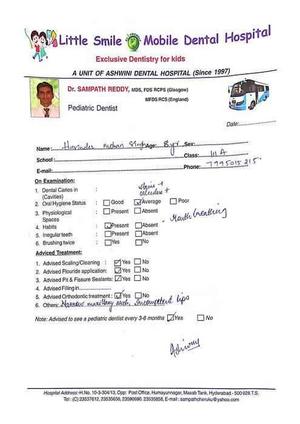 Little Smile Mobile Dental Hospital
Exclusive Dentistry for kids
A UNIT OF ASHWINI DENTAL HOSPITAL (Since 1997)
Dr. SAMPATH REDDY, MDS, FDS RCPS (Glasgow)
MFDS RCS (England)
Pediatric Dentist
Date:
Name: Mohan Age: 8yr Sex:
School: Class: III A
E-mail: Phone: 7995015215
On Examination:
1. Dental Caries in :
(Cavities)
2. Oral Hygiene Status : Good Average Poor
3. Physiological : Present Absent
Spaces
4. Habits : Present Absent Mouth breathing
5. Irregular teeth : Present Absent
6. Brushing twice : Yes No
Adviced Treatment:
1. Advised Scaling/Cleaning : Yes No
2. Advised Flouride application: Yes No
3. Advised Pit & Fissure Sealants: Yes No
4. Advised Filling in
5. Advised Orthodontic treatment : Yes No
6. Others: Narrow maxillary arch, incompetent lips
Note: Advised to see a pediatric dentist every 3-6 months Yes No
Hospital Address: H.No. 10-3-304/13, Opp: Post Office, Humayunnagar, Masab Tank, Hyderabad - 500 028 T.S.
Tel: (C) 23537612, 23535656, 23590690 23535858, E-mail : sampathcheruku@yahoo.com